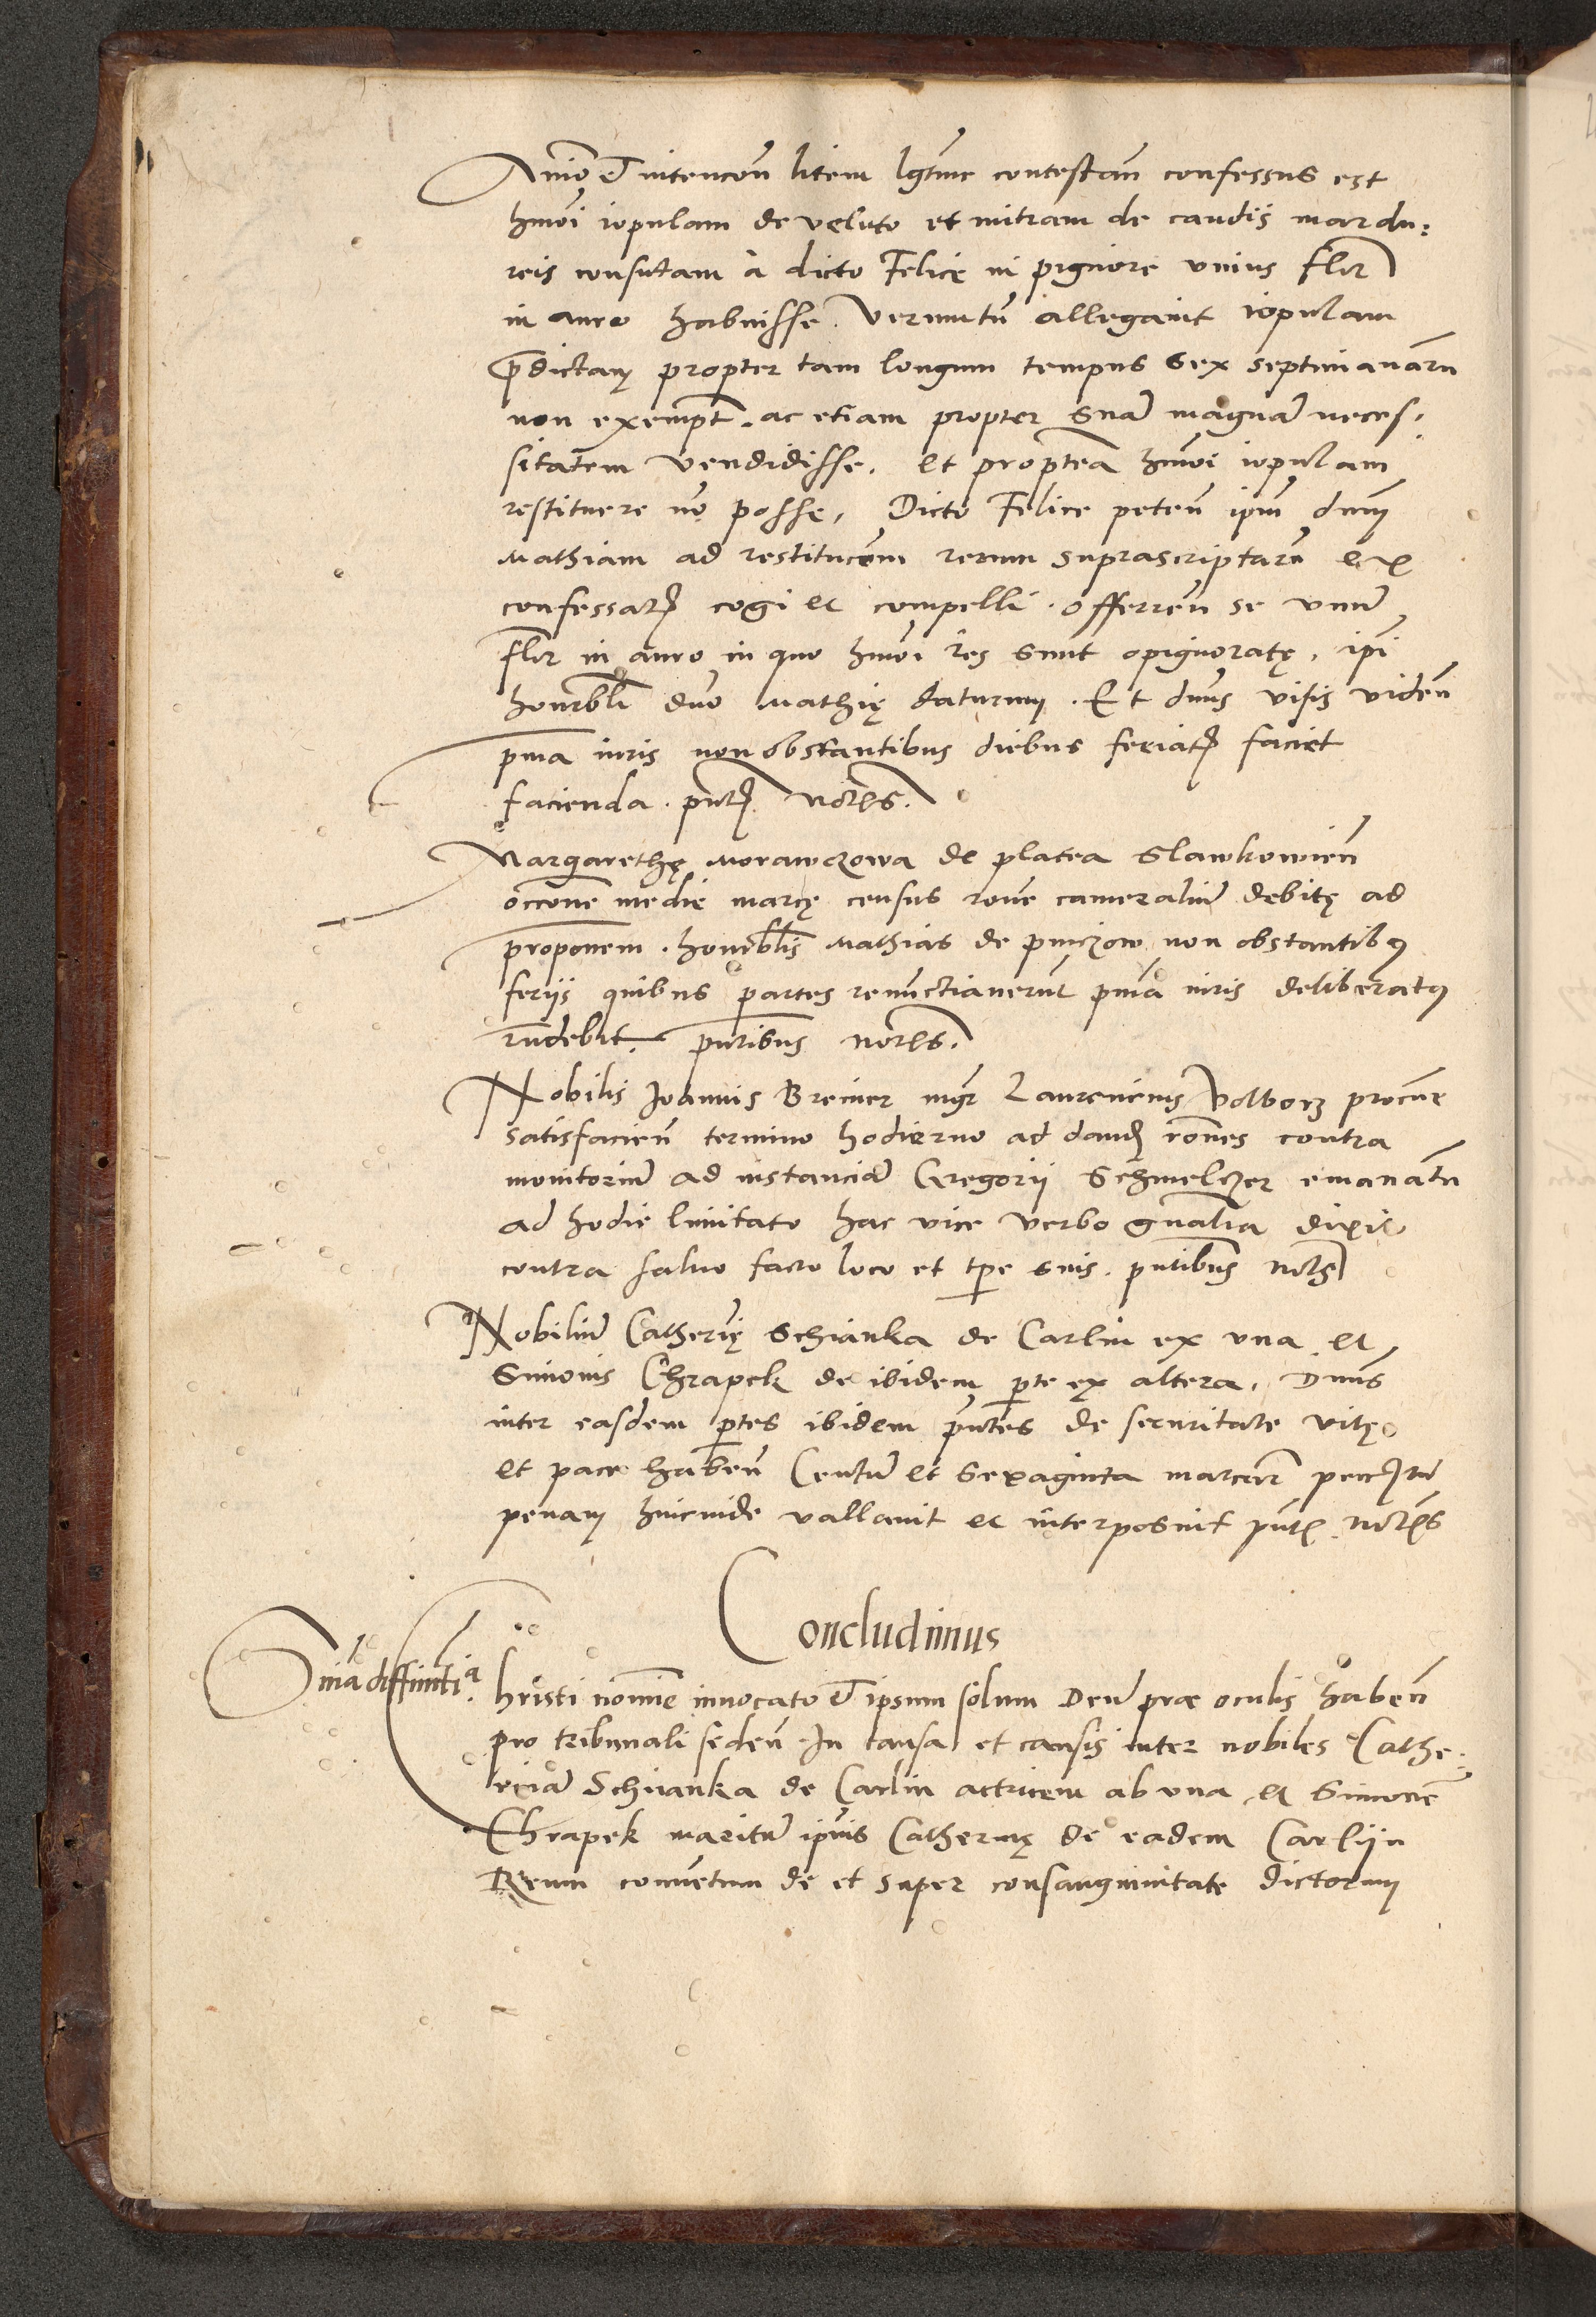 Animo et intencon litem lgtime contestan confessus est
hmoi iopulam de veluto et mitram de caudis mardu:
reis consutam a dicto Felice in pignore unius flor
in auro habuisse. Verumtn allegavit iopulam
predictam propter tam longum tempus sex septimanaru
non exempt. ac etiam propter sua magna neces,
sitatem vendidisse. et proptea hmoi iopulam
restituere no posse, Dicto Felice peten ipm dnm
Mathiam ad restitucoem rerum suprascriptaru ex
confessatis cogi et compelli. offerren se unu
flor in auro in quo hmoi res sunt opignoratę, ipi
honorbli dno Mathię daturum. Et dnus visis viden
pma iuris non obstantibus diebus feriat faciet
facienda. pntibus notis.
Margarethę Morawczowa de platea Slawkowien
occone medie marcę census rone cameraliu debitę ad
proponem. honorblis Mathias de pinczow non obstantibus
feriis quibus partes renunctiaverut pma iuris deliberatus
rndebit. pntibus notis.
Nobilis Joannis Breiner mgr Laurencius Volborz procur
satisfacien termino hodierno ad dand rones contra
monitoriu ad instancia Gregorii Schmelczer emanatu
ad hodie limitato hac vice verbo gnalia dixit
contra salvo facto loco et tpe suis. pntibus notis
Nobiliu Catherię Schianka de Carlin ex una et
Simonis Chrapek de ibidem pte ex altera, Dnus
inter easdem ptes ibidem pntes de securitate vitę
et pace haben Centu et Sexaginta marcar pecci
penam hincinde vallavit et interposuit pntibus notis
Concludimus
Snia diffinitia
Christi nomine invocato et ipsum solum Deu prae oculis haben
pro tribunali seden In causa et causis inter nobiles Cathe:
rina Schianka de Carlin actricem ab una et Simone
Chrapek maritu ipius Catherinę de eadem Carliin
Reum conuetum de et super consanguinitate dictorum